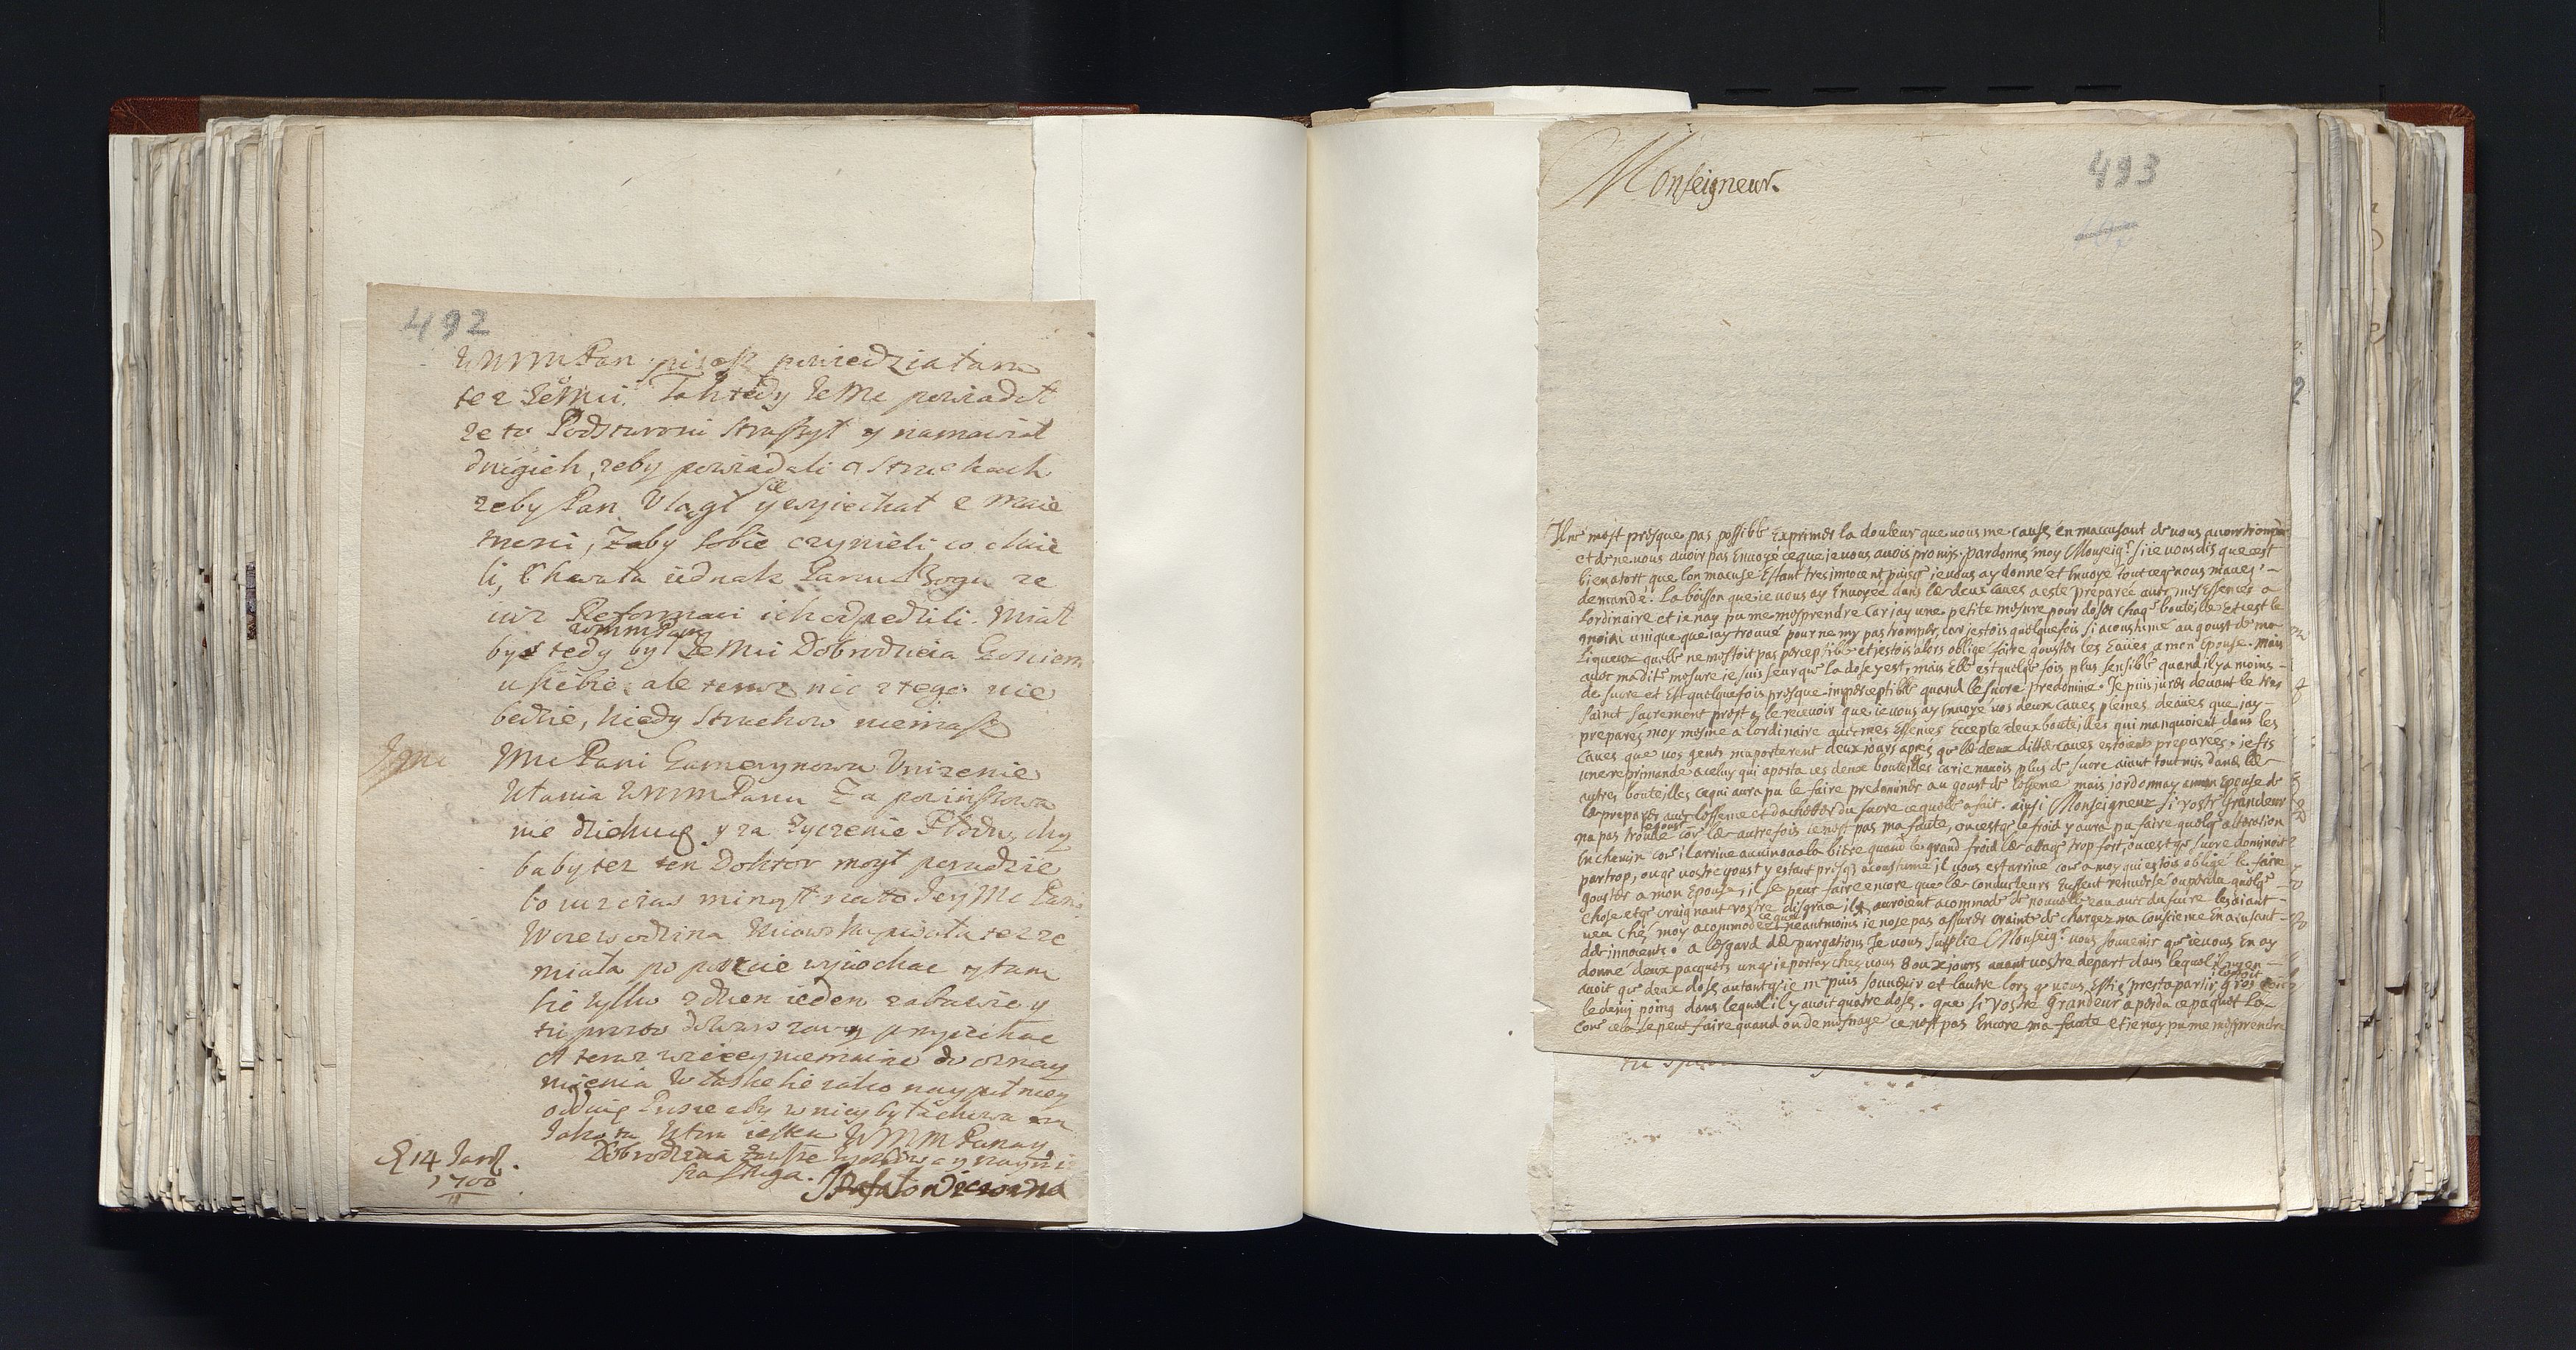 492
WMM Pan pisać powiedziałam
też JeMci. Tak tedy JeMc powiadał
że to Podstaroni straszył y namawiał
drugich, żeby powiadali o strachach
żeby Pan Ulągł się y wyiechał z maię
tneni, Żeby sobie czynieli co chcie
li, Chwała iednak Panu Bogu że
iuż Reformaci ich odpedzili. Miał
WMM Pan
byś tedy był JeMci Dobrodzieia Gościem
u siebie, ale teraz nic z tego nie
bedzie, kiedy strachow niemasz
Jmc
JMc Pani unizenie
kłania WMM Panu Za powinszowa
nie dziękuię y za życzenie Płodu, chy
baby też ten Doktor mogł poradzić
bo iuż czas minął na to JeyMc Pani
Woiewodzina Kiiowska pisała też że
miała po poście wyiechać y tam
sie tylko z dzień ieden zabawić y
tu prosto do Warszawy przyiechać
A teraz więcey niemaiąc do oznay
mięnia W łaskę sie iako naypilniey
oddaię Proszę aby w niey była
Jako ta ktora iestem WMM Pana y
Dobrodzieia Zawsze życzliwa y nayniż
sza sługa.
D 14 Janu.
1700
493
Monseigneur
Il ne m'est presque pas possible Exprimer la douleur que vous me causez en m'accusant de vous avoir trompé
et de ne vous avoir pas Envoyé ce que je vous avois promis. pardonnez moy Monseigr si je vous dis que c'est
bien a tort que l'on m'acuse Estant tres innocent puisq je vous ay donné et Envoyé tout ce q vous m'avez
demandé. La boisson que ie vous ay Envoyée dans les deux caves a esté preparée avec mes Essences a
l'ordinaire et ie n'ay pu me mesprendre Car j'ay une petite mesure pour doser chaq bouteille Et c'est le
moien unique que j'ay trouvé pour ne my pas tromper, car j'estois quelquefois si acoustumé au goust de ma
Liqueur quelle ne m'estoit pas perceptible et j'estois alors obligé faire gouster les Eaües a mon Epouse. Mais
avec madite mesure je suis seur que la dose y est, mais Elle est quelque fois plus sensible quand il y a moins
de sucre et Est quelquefois presque imperceptible quand le sucre predomine. Je puis jurer devant le tres
saint sacrement prest a le recevoir que ie vous ay Envoyé vos deux caves pleines d'eaües que j'ay
preparez moy mesme a l'ordinaire avec mes Essences Excepté deux bouteilles qui manquoient dans les
Caves que vos gents m'aporterent deux jours apres q les deux dittes caves estoient preparées. je fis
une reprimande a celuy qui aporta ces deux bouteilles car ie n'avois plus de sucre aiant tout mis dans les
autres bouteilles ce qui aura pu le faire predominer au goust de l'essence mais j'ordonnay a mon Epouse de
les preparer avec l'essence et d'achetter du sucre ce quelle a fait. ainsi Monseigneur si vostre Grandeur
le goust
na pas trouvé cōe les autrefois ce n'est pas ma faute, ou c'est q le froid y aura pu faire quelq alteration
En chemin cōe il arrive au vin ou a la biere quand le grand froid les attaq trop fort, ou c'est q le sucre dominoit
par trop, ou q vostre goust y estant presq acoustumé il vous est arrivé cōe a moy qui estois obligé le faire
gouster a mon Epouse, il se peut faire encore que les conducteurs Eussent renversé ou perdu quelq
chose et q craignant vostre disgrace ils auroient acommodé de nouvelle eau avec du sucre les aiant
ce que
veu chez moy acommoder neantmoins je n'ose pas assurer crainte de charger ma consciense En acusant
des innocents. a l'esgard des purgations Je vous suplie Monseigr vous souvenir que ie vous En ay
donné deux pacquets un q ie portay chez vous 8 ou X jours avant vostre depart dans lequel il n'y en
avoit que deux dose autant q ie m'e puis souvenir et l'autre lors q vous Estiez prest a partir
il estoit
gros cōe
le demy poing dans lequel il y avoit quatre dose. que si vostre Grandeur a perdu ce paquet la
cōe cela se peut faire quand on demesnage ce n'est pas Encore ma faute et ie n'ay pu me mesprendre